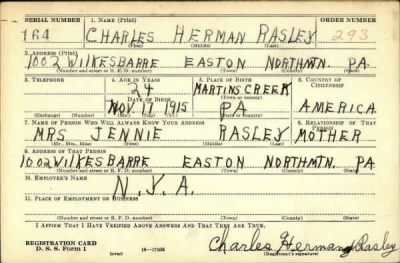 SERIAL NUMBER 1. NAME (Print) ORDER NUMBER
164 CHARLES HERMAN RASLEY 293
(First) (Middle) (Last)
2. ADDRESS (Print)
1002 WILKESBARRE EASTON NORTHMTN. PA.
(Number and street or R. F. D. number) (Town) (County) (State)
3. TELEPHONE 4. AGE IN YEARS 5. PLACE OF BIRTH 6. COUNTRY OF CITIZENSHIP
24 MARTINS CREEK
DATE OF BIRTH (Town or county)
NOV 17 1915 PA AMERICA
(Exchange) (Number) (Mo.) (Day) (Yr.) (State or country)
7. NAME OF PERSON WHO WILL ALWAYS KNOW YOUR ADDRESS 8. RELATIONSHIP OF THAT PERSON
MRS JENNIE RASLEY MOTHER
(Mr., Mrs., Miss) (First) (Middle) (Last)
9. ADDRESS OF THAT PERSON
1002 WILKESBARRE EASTON NORTHMTN. PA
(Number and street or R. F. D. number) (Town) (County) (State)
10. EMPLOYER'S NAME
N.Y.A.
11. PLACE OF EMPLOYMENT OR BUSINESS
(Number and street or R. F. D. number) (Town) (County) (State)
I AFFIRM THAT I HAVE VERIFIED ABOVE ANSWERS AND THAT THEY ARE TRUE.
REGISTRATION CARD
D. S. S. Form 1 (over) Charles Herman Rasley
(Registrant's signature)